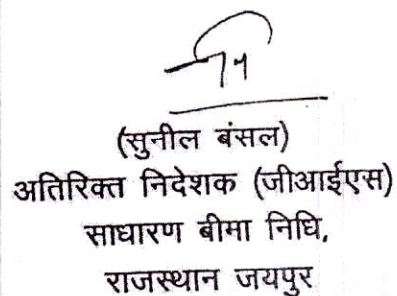 (सुनील बंसल)
अतिरिक्त निदेशक (जीआईएस)
साधारण बीमा निधि,
राजस्थान जयपुर